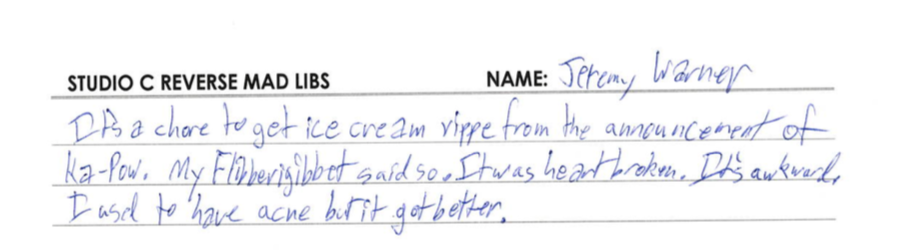 STUDIO C REVERSE MAD LIBS NAME: Jeremy Warner
It's a chore to get ice cream rippe from the announcement of
Ka-Pow. My Flibberigibbet said so. It was heart broken. It's awkward.
I used to have acne but it got better.